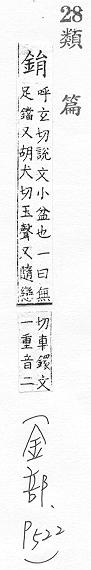 28類篇
鋗
呼玄切說文小盆也一曰無
足鐺又胡犬切玉聲又隨戀
切車鐶文
一重音二
(金部、P522)